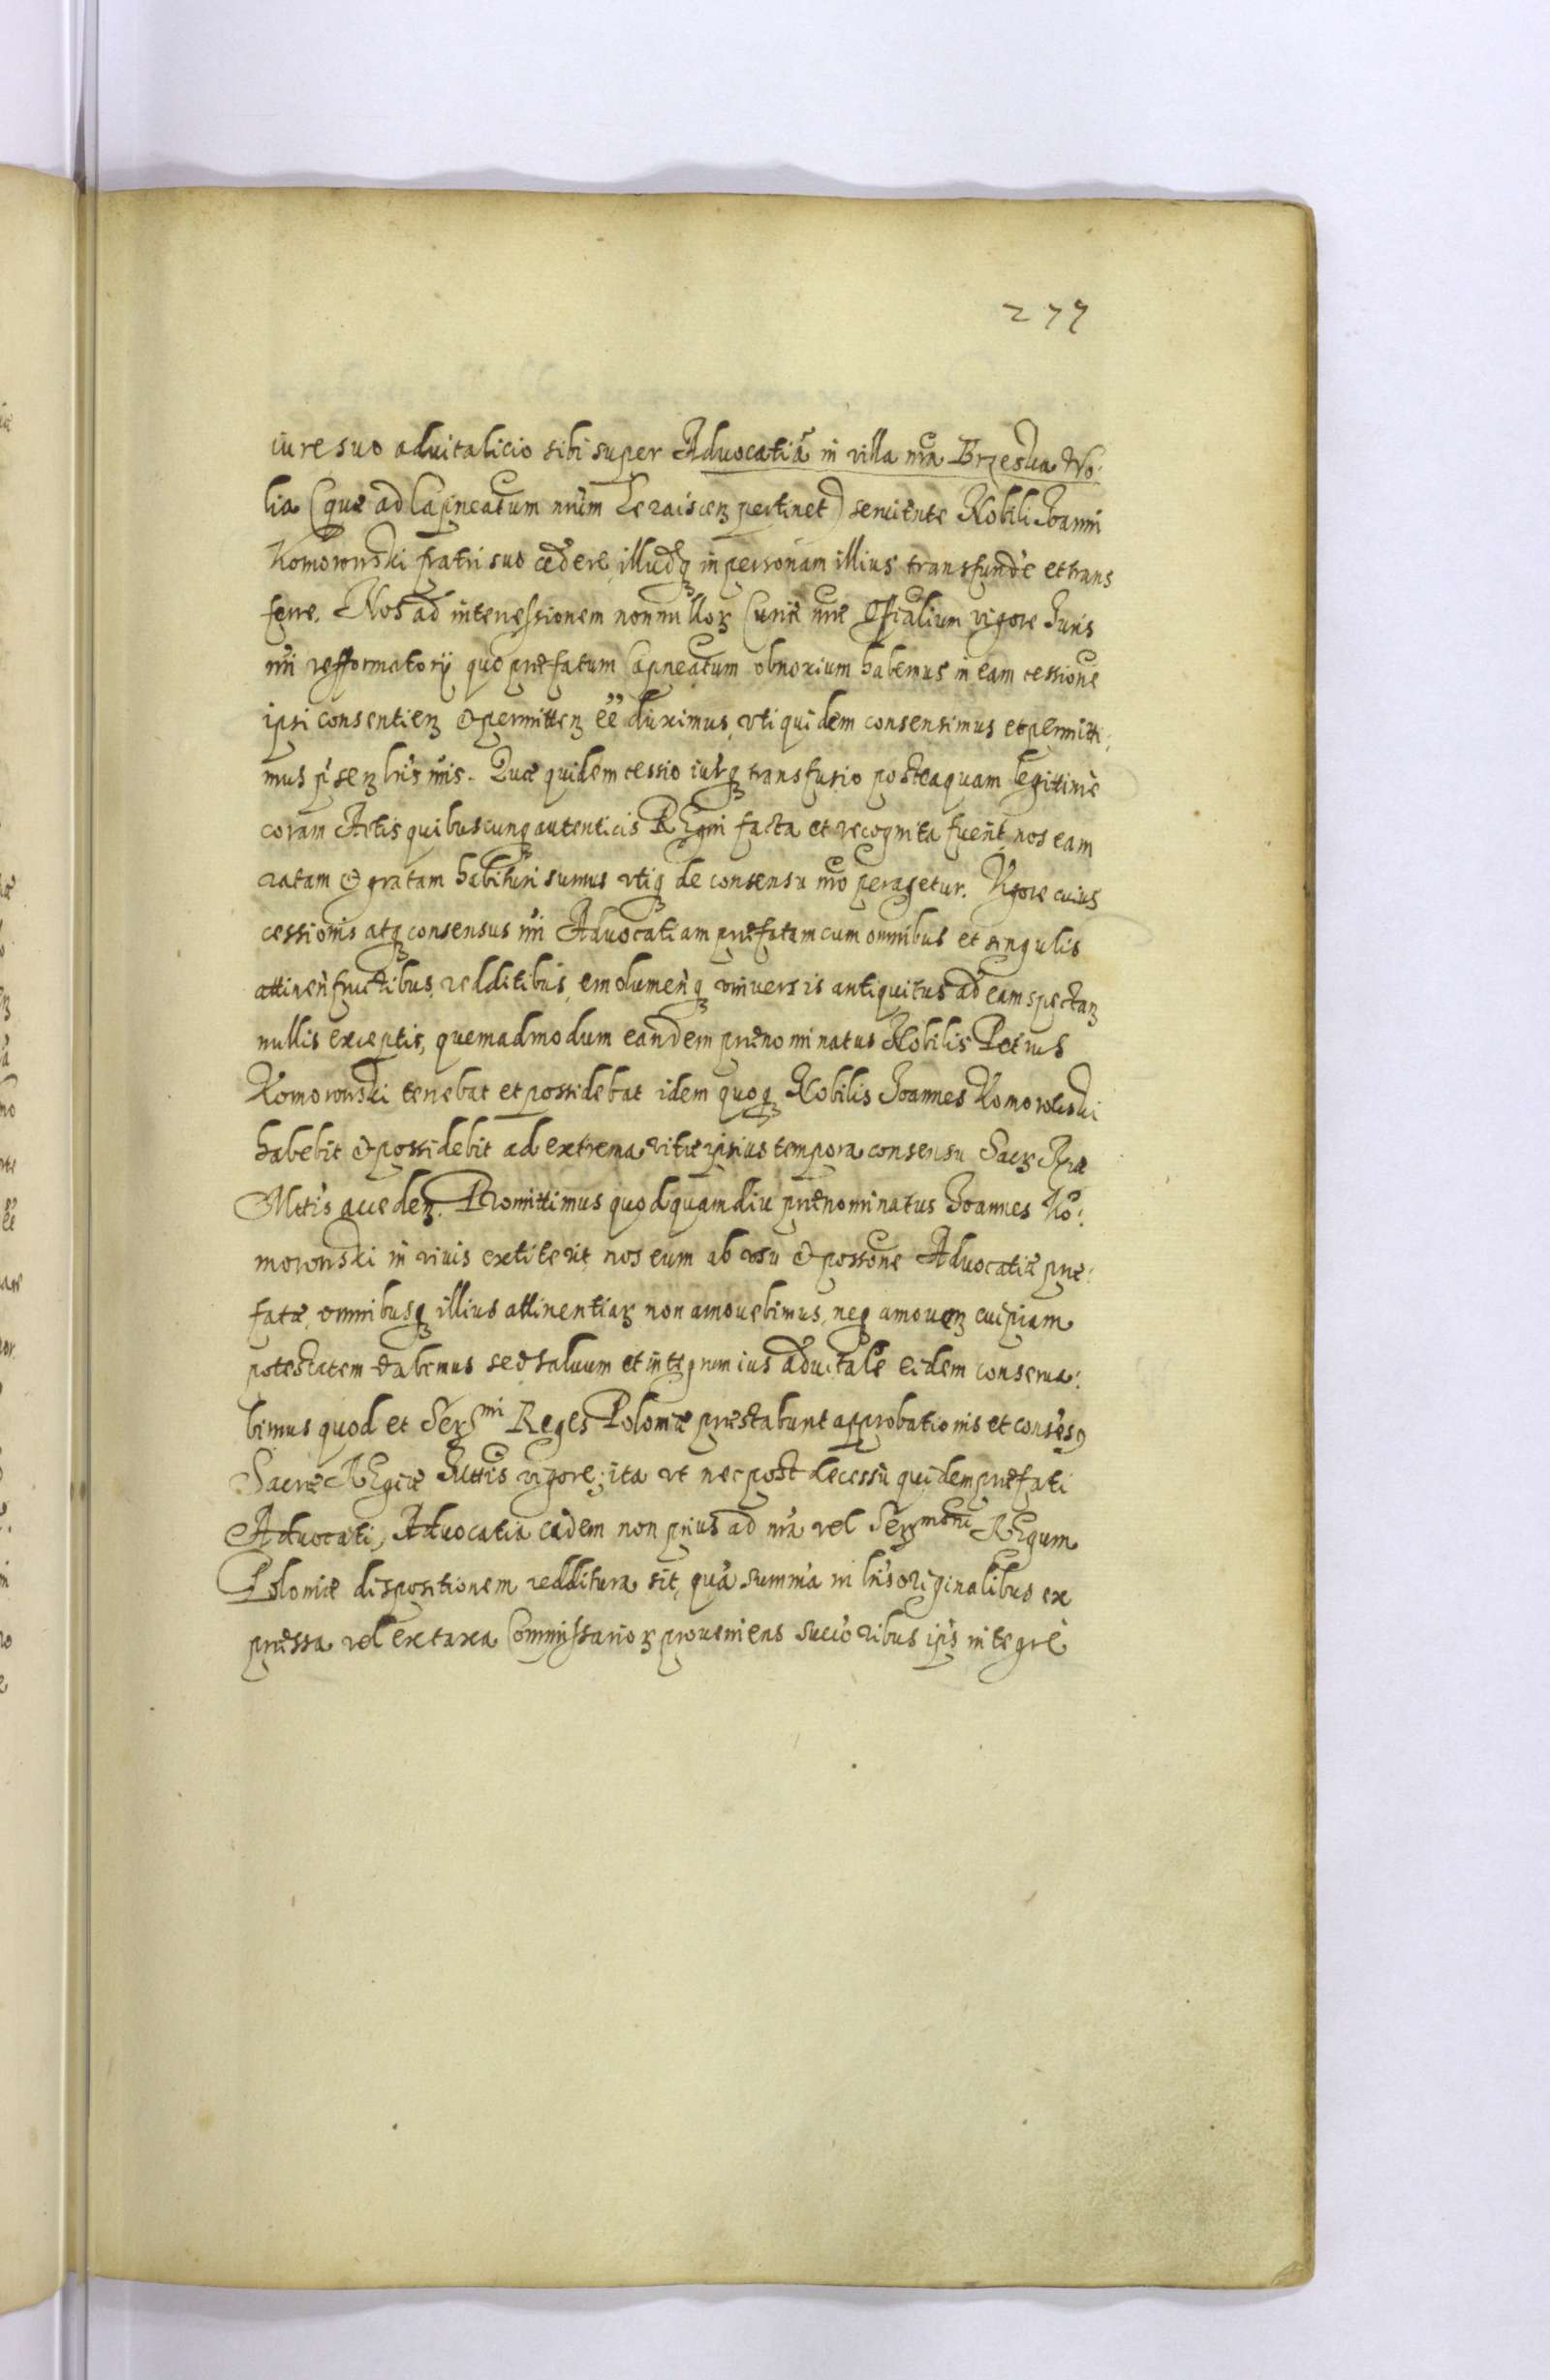 277
iure suo aduitalicio sibi super Aduocatiã in villa nrã Brzeska Wo:
lia (quæ ad Capneatum nrũm Lezaiscen pertinet) seruiente Nobili Joanni
Komorowski fratri suo cædere illudq̃ in personam illius transfundẽ et trans
ferre. Nos ad intercessionem nonnulloꝝ Curiæ nræ Officialium vigore Juris
nrĩ refformatorij quo præfatum Capneatum obnoxium habemus in eam cessionẽ
ipsi consentien̄ & permitten̄ eẽ duximus, vti quidem consensimus et permitti:
mus p̃sen̄ lrĩs nrĩs. Quæ quidem cessio iurisq̃ transfusio posteaquam legittimè
coram Actis quibuscunq̃ autenticis REgni facta et recognita fuerit, nos eam
ratam & gratam habituri sumus vtiq̃ de consensu nrõ peragetur. Vigore cuius
cessionis atq̃ consensus nrĩ Aduocatiam præfatam cum omnibus et singulis
attinen̄ fructibus, redditibus, emolumen̄q̃ vniuersis antiquitus ad eam spectan̄
nullis exceptis, quemadmodum eandem prænominatus Nobilis Petrus
Komorowski tenebat et possidebat idem quoq̃ Nobilis Joannes Komorowski
habebit & possidebit ad extrema vitæ ipsius tempora consensu Sacꝝ Rgiæ
Mttis acceden̄. Promittimus quod quamdiu prænominatus Joannes Ko:
morowski in viuis extiterit, nos eum ab vsu & possone Aduocatiæ præ:
fatæ, omnibusq̃ illius attinentiaꝝ non amouebimus, neq̃ amouen̄ cuipiam
potestatem dabimus sed saluum et integrum ius aduitale eidem conserua:
bimus quod et Serꝝmi Reges Poloniæ præstabunt approbationis et consẽsꝰ
Sacræ REgiæ Mttis vigore; ita vt nec post decessũ quidem præfati
Aduocati, Aduocatia eadem non prius ad nrã vel Serꝝmorũ REgum
Poloniæ dispositionem redditura sit, quã summa in lrĩs originalibus ex
pressa vel ex taxa Commissarioꝝ proueniens succõribus ipĩs integrè